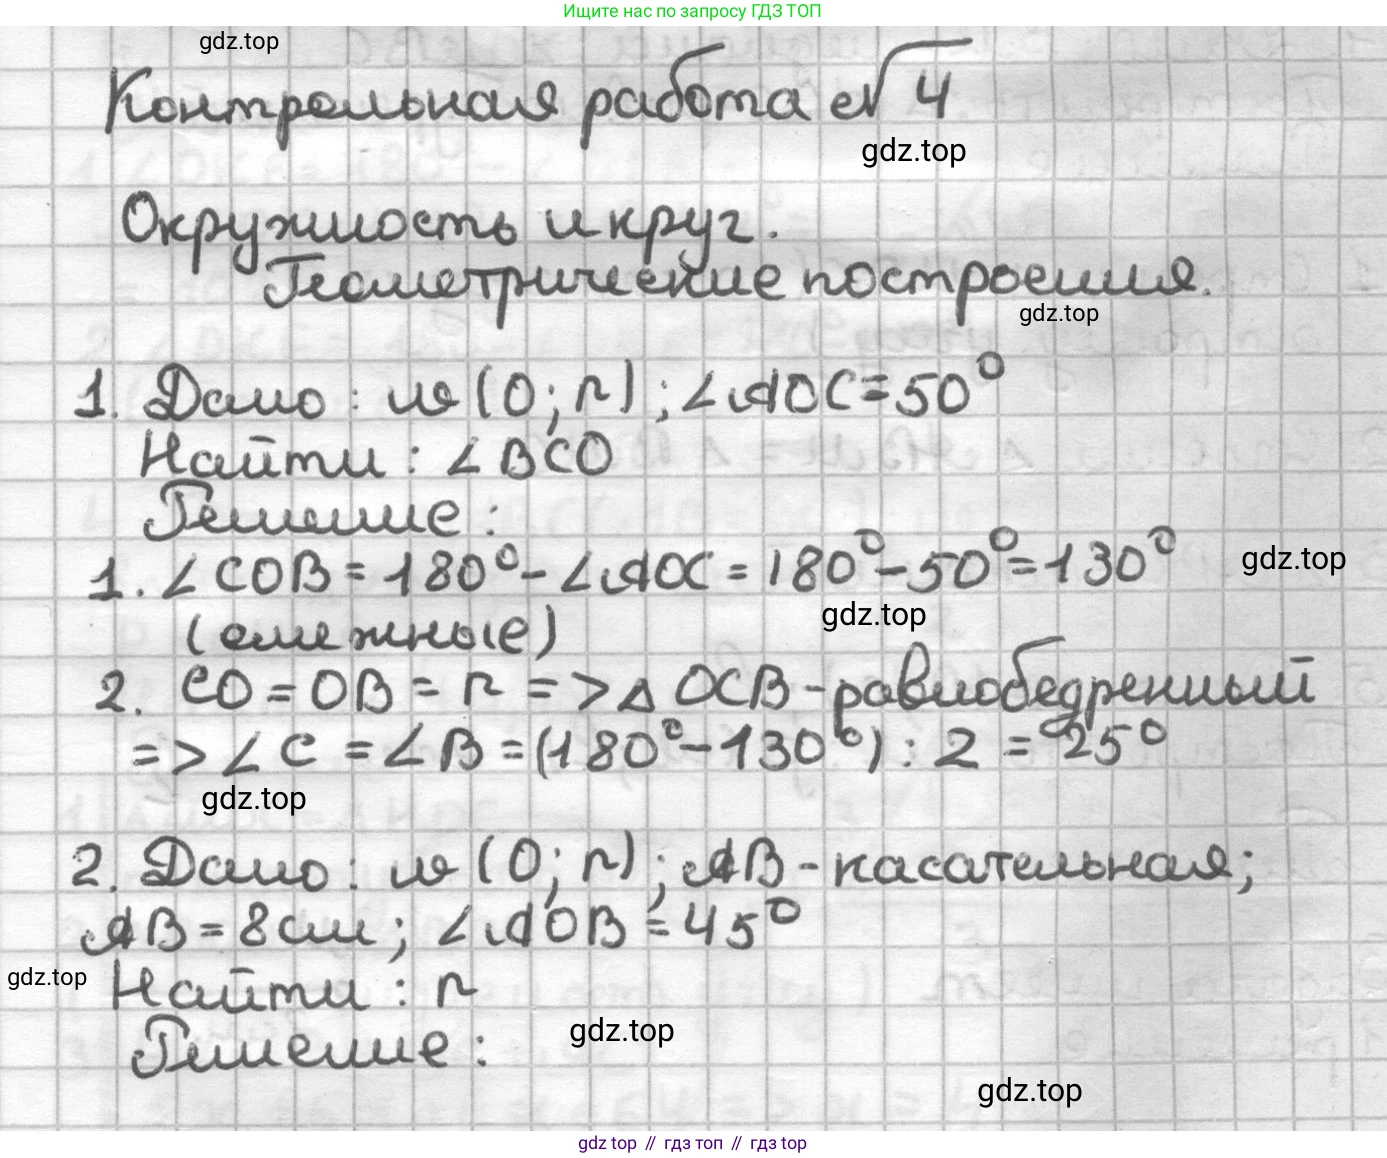 Ищите нас по запросу ГДЗ ТОП
gdz.top
Контрольная работа №4
gdz.top
Окружность и круг.
Геометрические построения.
gdz.top
1. Дано: w(O; r); ∠AOC = 50°
Найти: ∠BCO
Решение:
1. ∠COB = 180° - ∠AOC = 180° - 50° = 130°
gdz.top
(смежные)
gdz.top
2. CO = OB = r => △ OCB - равнобедренный
=> ∠C = ∠B = (180° - 130°) : 2 = 25°
gdz.top
2. Дано: w(O; r); AB - касательная;
AB = 8 см; ∠AOB = 45°
gdz.top
Найти: r
gdz.top
Решение:
gdz.top
gdz top // гдз топ // гдз top